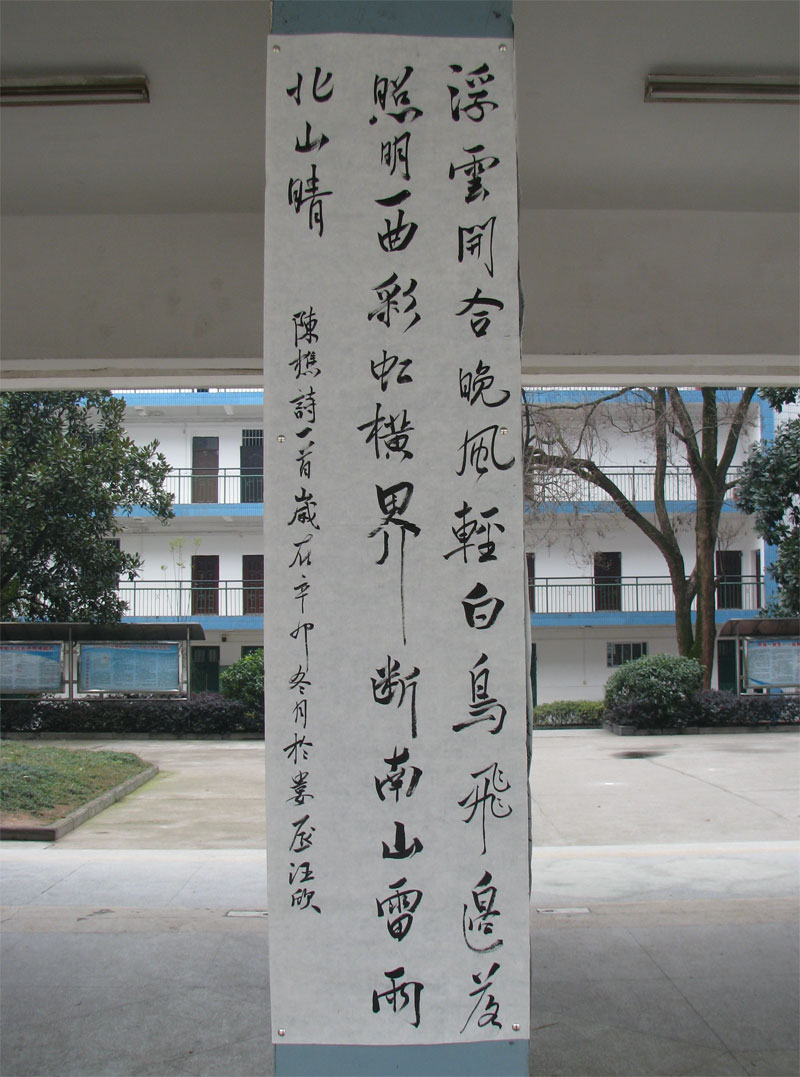 浮雲開合晚風輕白鳥飛邊落
照明一曲彩虹橫界断南山雷雨
北山晴
陳樵詩一首歲在辛卯冬月於婁底汪欣